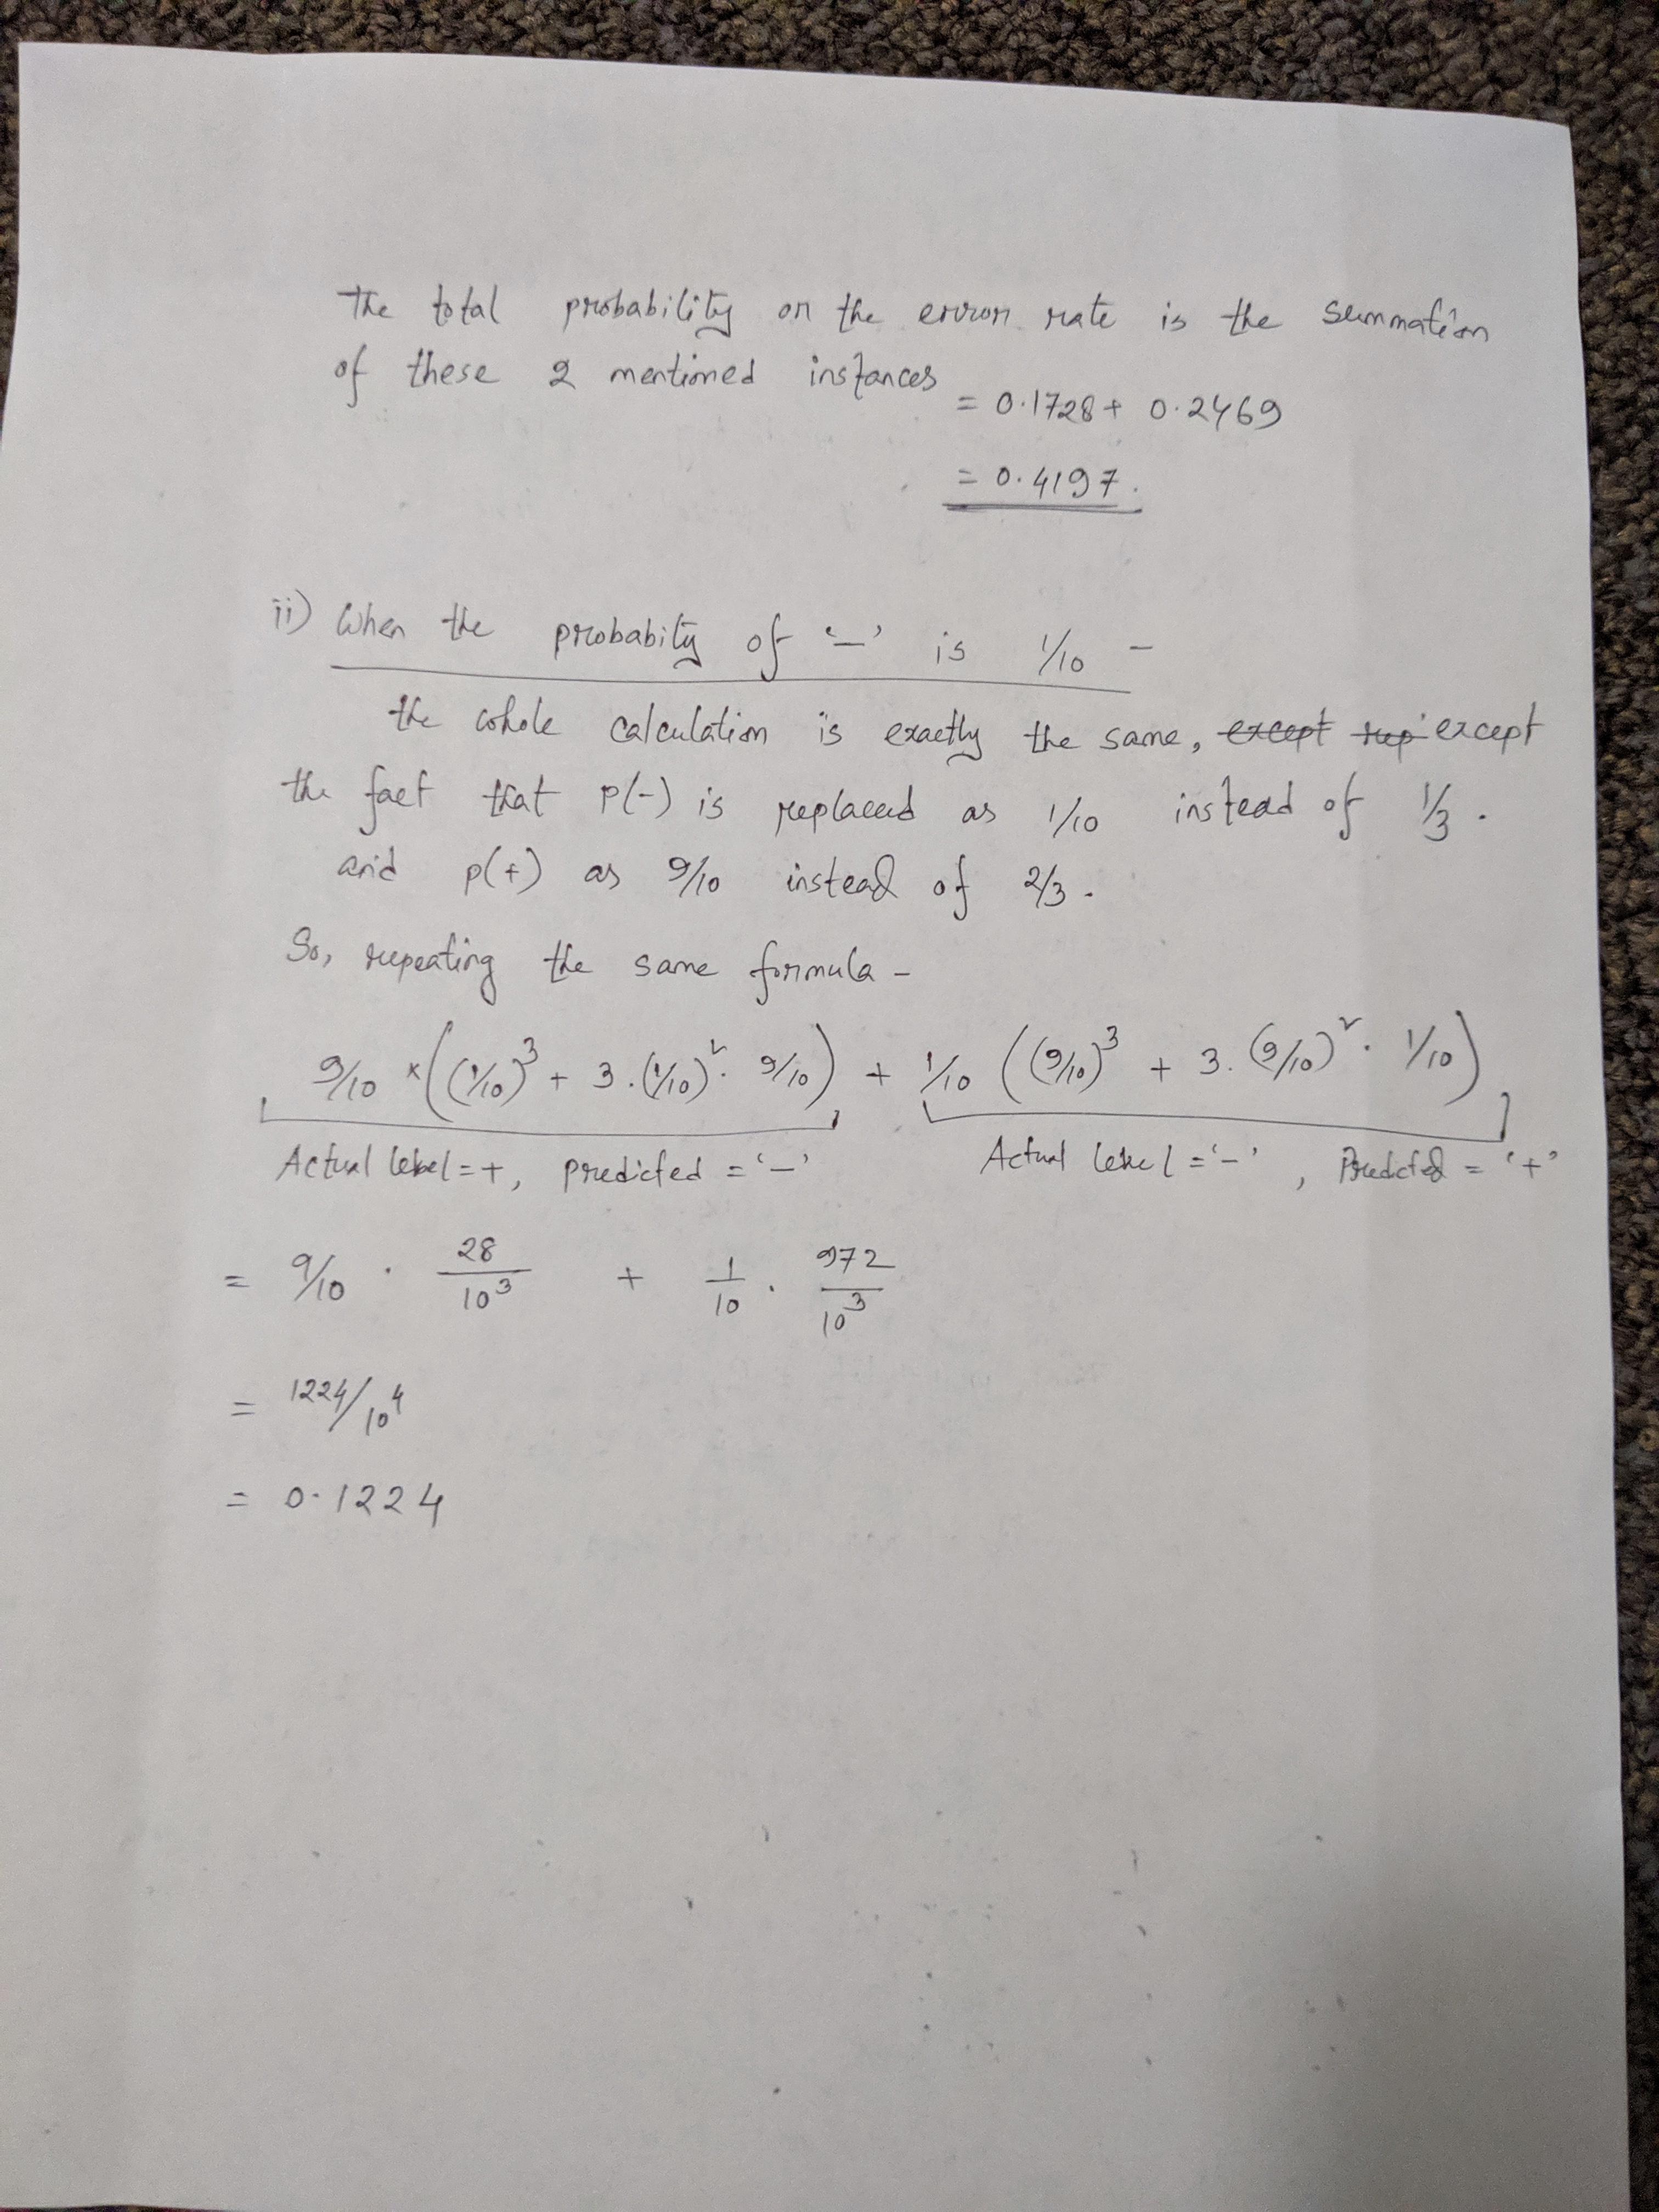 The total probability on the error rate is the summation
of these 2 mentioned instances
= 0.1728 + 0.2469
= 0.4197.
ii) When the probabity of '-' is 1/10 -
the whole calculation is exactly the same, except rep except
the fact that P(-) is replaced as 1/10 instead of 1/3.
and p(+) as 9/10 instead of 2/3.
So, repeating the same formula -
9/10 × ((1/10)³ + 3.(1/10)². 9/10) + 1/10 ((9/10)³ + 3.(9/10)². 1/10)
Actual lebel = +, predicted = '-' Actual lebel = '-', Predicted = '+'
= 9/10 . 28/10³ + 1/10 . 972/10³
= 1224/10⁴
= 0.1224